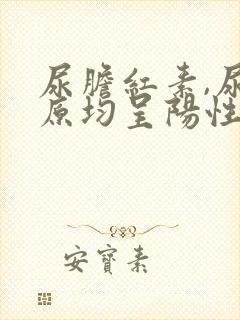 尿膽紅素,尿
原均呈陽性
安寶素